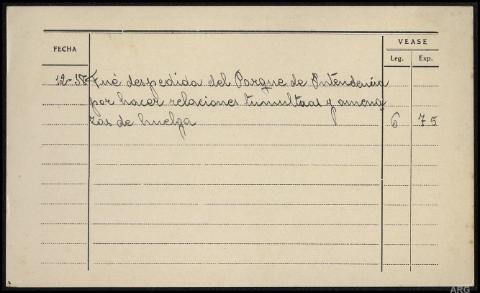 VEASE
FECHA
Leg. Exp.
12-38 Fué despedida del Parque de Intendencia
por hacer relaciones tumultuas y amena
zas de huelga 6 75
ARG